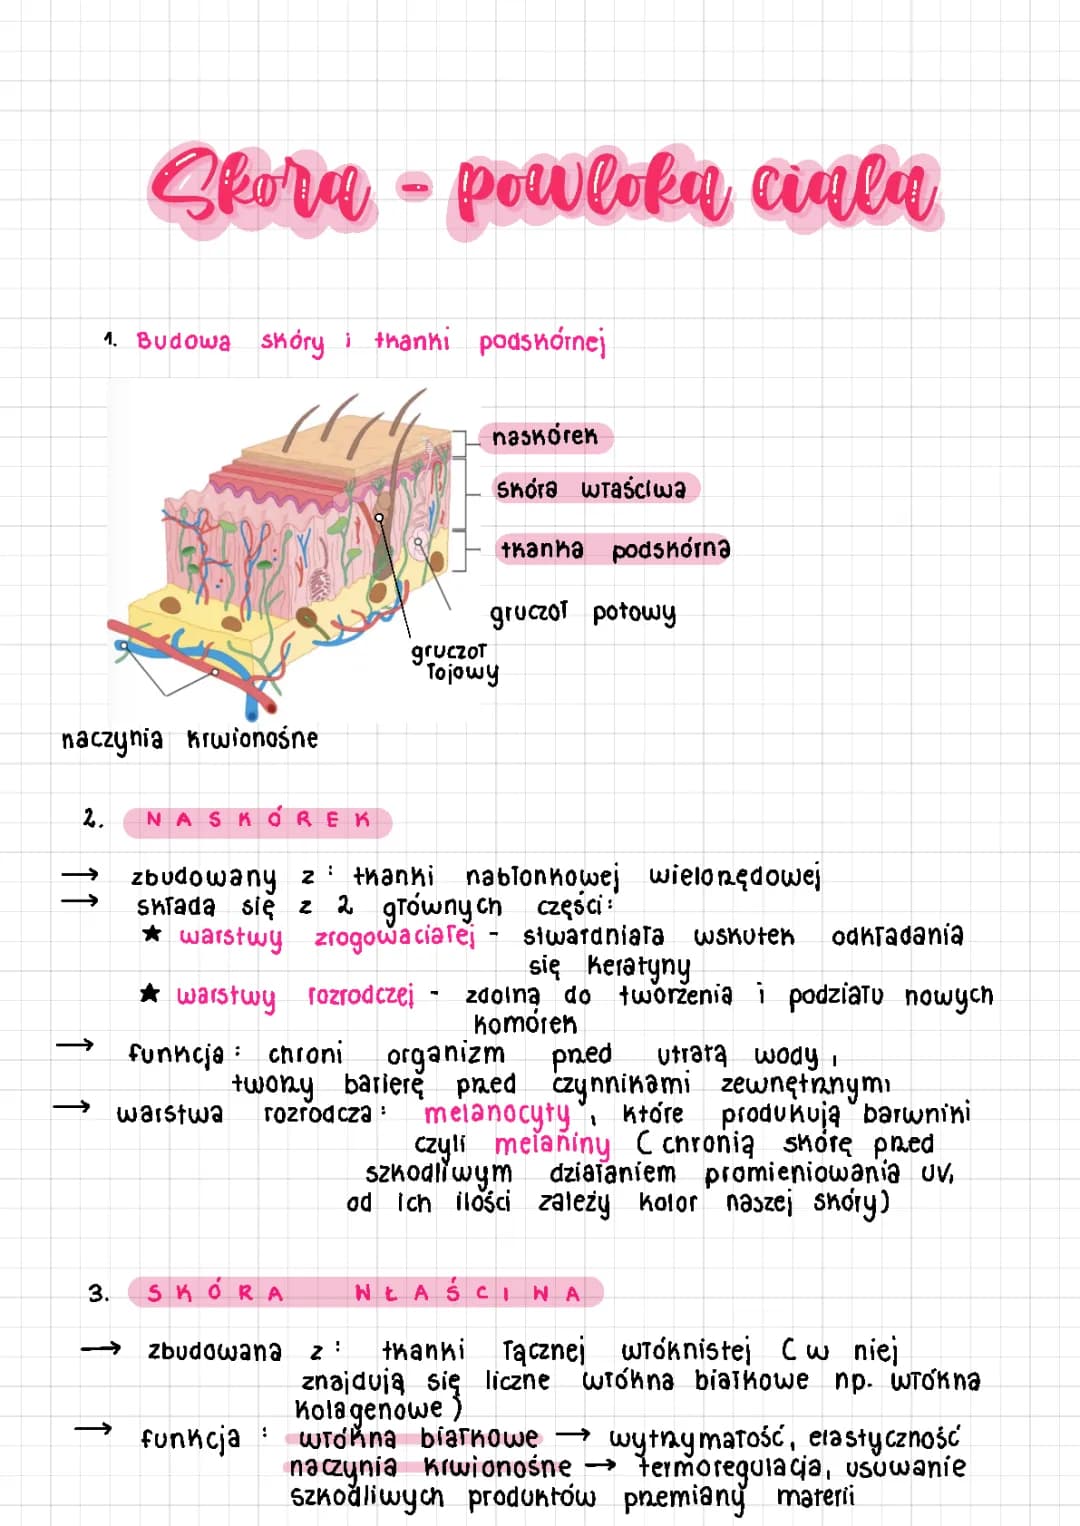 Skóra - powłoka ciała
1. Budowa skóry i tkanki podskórnej
naskórek
skóra właściwa
tkanka podskórna
gruczoł potowy
gruczoł
łojowy
naczynia krwionośne
2. NASKÓREK
→ zbudowany z: tkanki nabłonkowej wielorzędowej
→ składa się z 2 głównych części:
★ warstwy zrogowaciałej - stwardniała wskutek odkładania
się keratyny
★ warstwy rozrodczej - zdolną do tworzenia i podziału nowych
komórek
→ funkcja: chroni organizm przed utratą wody,
tworzy barierę przed czynnikami zewnętrznymi
→ warstwa rozrodcza: melanocyty, które produkują barwniki
czyli melaniny (chronią skórę przed
szkodliwym działaniem promieniowania UV,
od ich ilości zależy kolor naszej skóry)
3. SKÓRA WŁAŚCIWA
→ zbudowana z: tkanki łącznej włóknistej (w niej
znajdują się liczne włókna białkowe np. włókna
kolagenowe)
→ funkcja: włókna białkowe → wytrzymałość, elastyczność
naczynia krwionośne → termoregulacja, usuwanie
szkodliwych produktów przemiany materii